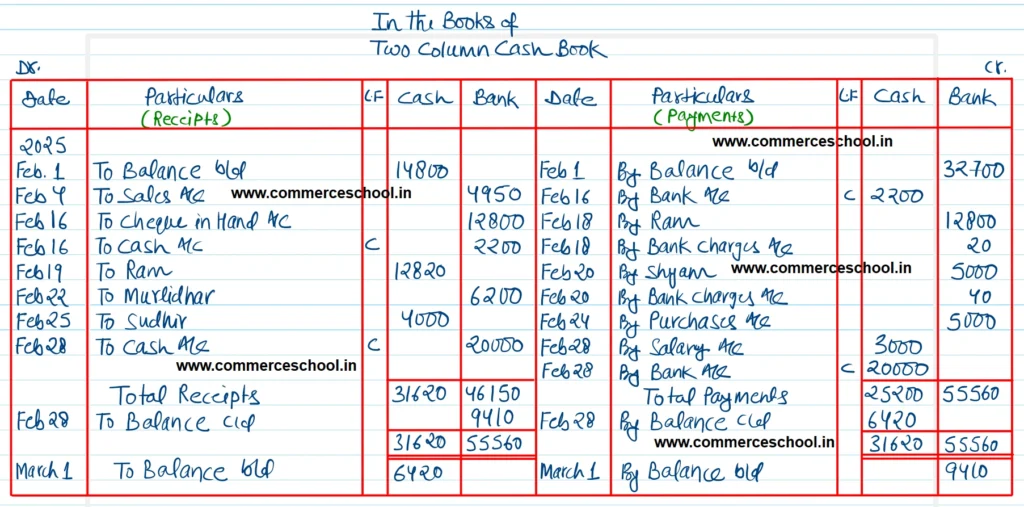 In the Books of
Two Column Cash Book
Dr. Cr.
Date Particulars LF Cash Bank Date Particulars LF Cash Bank
(Receipts) (Payments)
www.commerceschool.in
2025
Feb. 1 To Balance b/d 14800 Feb 1 By Balance b/d 32700
Feb 4 To Sales A/c www.commerceschool.in 4950 Feb 16 By Bank A/c C 2200
Feb 16 To Cheque in Hand A/c 12800 Feb 18 By Ram 12800
Feb 16 To Cash A/c C 2200 Feb 18 By Bank Charges A/c 20
Feb 19 To Ram 12820 Feb 20 By Shyam www.commerceschool.in 5000
Feb 22 To Murlidhar 6200 Feb 20 By Bank Charges A/c 40
Feb 25 To Sudhir 4000 Feb 24 By Purchases A/c 5000
Feb 28 To Cash A/c C 20000 Feb 28 By Salary A/c 3000
www.commerceschool.in Feb 28 By Bank A/c C 20000
Total Receipts 31620 46150 Total Payments 25200 55560
Feb 28 To Balance c/d 9410 Feb 28 By Balance c/d 6420
31620 55560 www.commerceschool.in 31620 55560
March 1 To Balance b/d 6420 March 1 By Balance b/d 9410